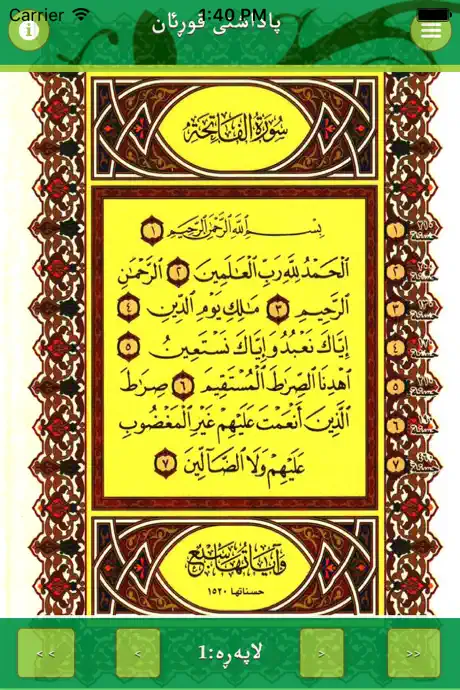 Carrier 1:40 PM
پاداشتی قورئان
سُورَةُ الفَاتِحَةِ
بِسْمِ اللَّهِ الرَّحْمَٰنِ الرَّحِيمِ ١
الْحَمْدُ لِلَّهِ رَبِّ الْعَالَمِينَ ٢ الرَّحْمَٰنِ
الرَّحِيمِ ٣ مَالِكِ يَوْمِ الدِّينِ ٤
إِيَّاكَ نَعْبُدُ وَإِيَّاكَ نَسْتَعِينُ ٥
اهْدِنَا الصِّرَاطَ الْمُسْتَقِيمَ ٦ صِرَاطَ
الَّذِينَ أَنْعَمْتَ عَلَيْهِمْ غَيْرِ الْمَغْضُوبِ
عَلَيْهِمْ وَلَا الضَّالِّينَ ٧
١
٢
٣
٤
٥
٦
٧
وَآيَاتُهَا سَبْعٌ
حسناتها ١٥٢٠
< < < لاپەڕە:1 > >>